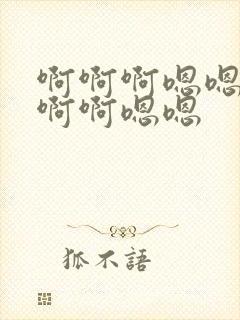 啊啊啊嗯嗯
啊啊嗯嗯
狐不語